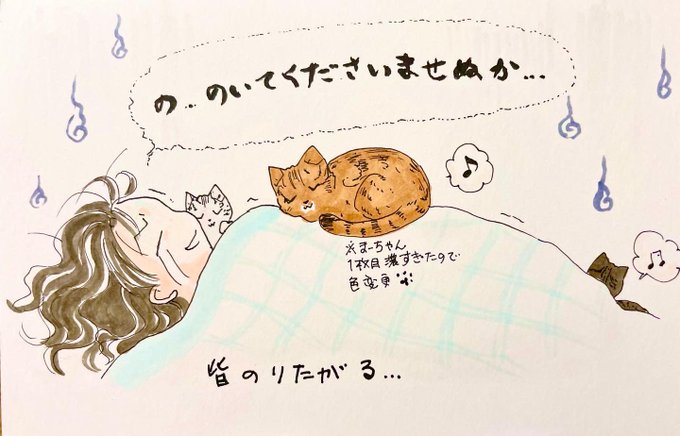 の‥のいてくださいませぬか…
※まーちゃん
1枚目濃すぎたので
色変更
皆のりたがる…